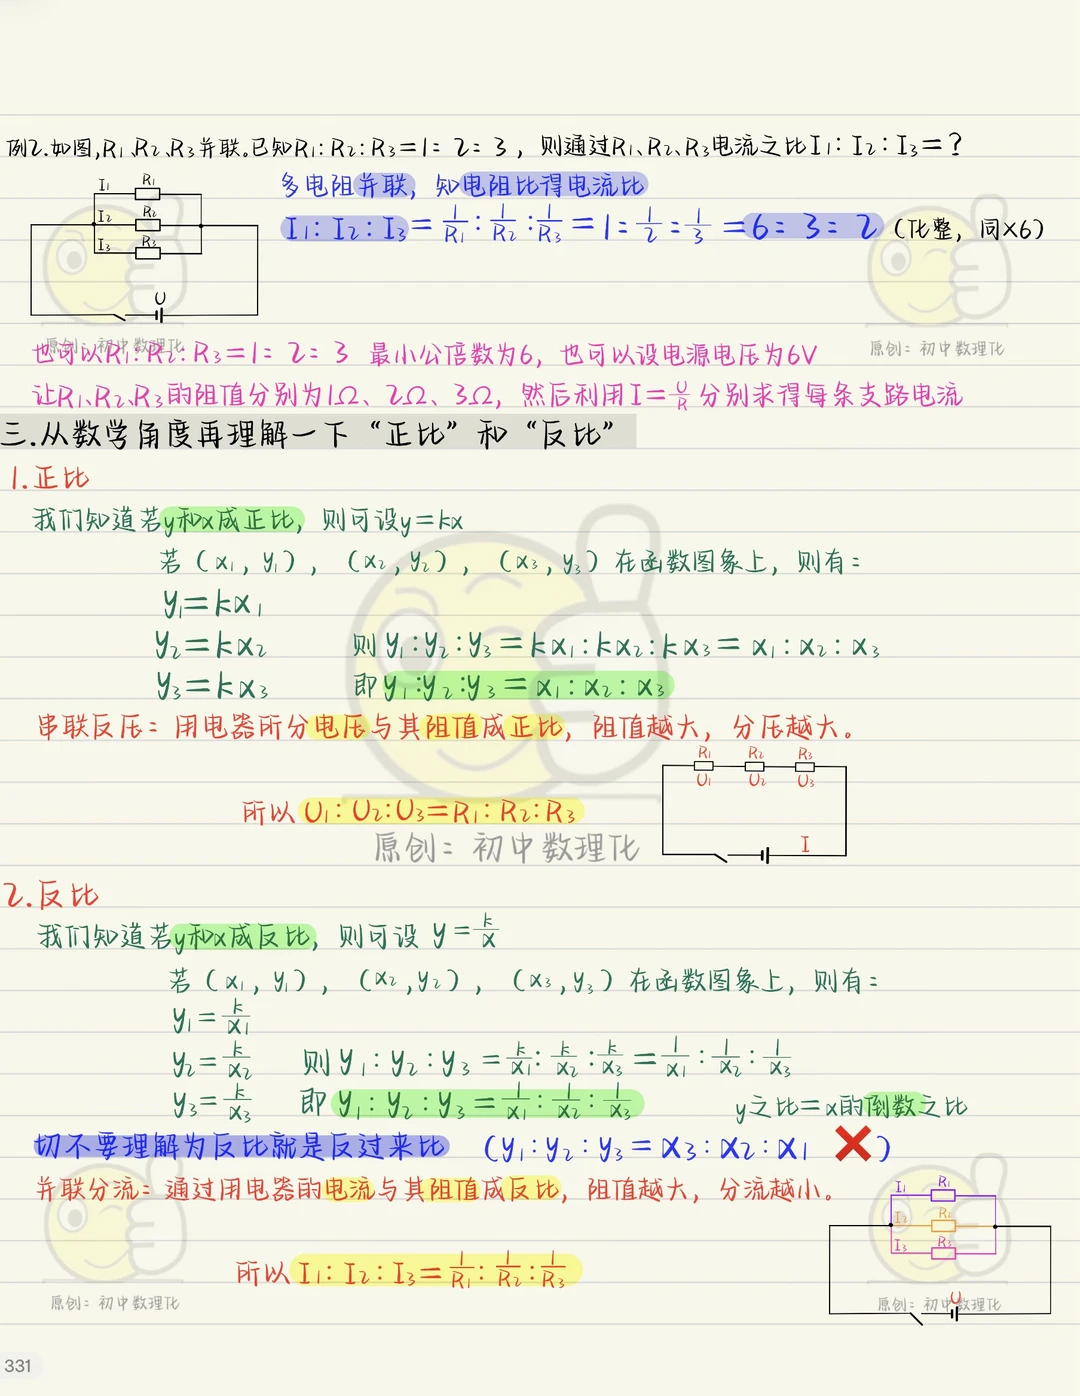 例2.如图,R₁、R₂、R₃并联.已知R₁:R₂:R₃=1:2:3，则通过R₁、R₂、R₃电流之比I₁:I₂:I₃=?
多电阻并联，知电阻比得电流比
I₁:I₂:I₃=1/R₁:1/R₂:1/R₃=1:1/2:1/3=6:3:2（化整，同×6）
I₁ R₁
I₂ R₂
I₃ R₃
U
原创：初中数理化
原创：初中数理化
也可以R₁:R₂:R₃=1:2:3 最小公倍数为6，也可以设电源电压为6V
让R₁、R₂、R₃的阻值分别为1Ω、2Ω、3Ω，然后利用I=U/R分别求得每条支路电流
三.从数学角度再理解一下“正比”和“反比”
1.正比
我们知道若y和x成正比，则可设y=kx
若（x₁,y₁），（x₂,y₂），（x₃,y₃）在函数图象上，则有：
y₁=kx₁
y₂=kx₂ 则y₁:y₂:y₃=kx₁:kx₂:kx₃=x₁:x₂:x₃
y₃=kx₃ 即y₁:y₂:y₃=x₁:x₂:x₃
串联反压：用电器所分电压与其阻值成正比，阻值越大，分压越大。
R₁ R₂ R₃
U₁ U₂ U₃
I
所以U₁:U₂:U₃=R₁:R₂:R₃
原创：初中数理化
2.反比
我们知道若y和x成反比，则可设 y=k/x
若（x₁,y₁），（x₂,y₂），（x₃,y₃）在函数图象上，则有：
y₁=k/x₁
y₂=k/x₂ 则y₁:y₂:y₃=k/x₁:k/x₂:k/x₃=1/x₁:1/x₂:1/x₃
y₃=k/x₃ 即y₁:y₂:y₃=1/x₁:1/x₂:1/x₃ y之比=x的倒数之比
切不要理解为反比就是反过来比 （y₁:y₂:y₃=x₃:x₂:x₁ ❌）
并联分流：通过用电器的电流与其阻值成反比，阻值越大，分流越小。
I₁ R₁
I₂ R₂
I₃ R₃
U
所以I₁:I₂:I₃=1/R₁:1/R₂:1/R₃
原创：初中数理化
原创：初中数理化
331